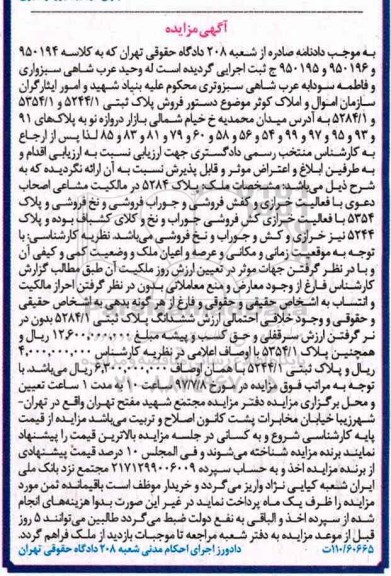 آگهی مزایده
به موجب دادنامه صادره از شعبه ۲۰۸ دادگاه حقوقی تهران که به کلاسه ۹۵۰۱۹۴
و ۹۵۰۱۹۶ و ۹۵۰۱۹۵ ج ثبت اجرایی گردیده است له وحید عرب شاهی سبزواری
و فاطمه سودابه عرب شاهی سبزوتری محکوم علیه بنیاد شهید و امور ایثارگران
سازمان اموال و املاک کوثر موضوع دستور فروش پلاک ثبتی ۵۲۴۴/۱ و ۵۳۵۴/۱
و ۵۲۸۴/۱ به آدرس میدان محمدیه خ خیام شمالی بازار دروازه نو به پلاک‌های ۹۱
و ۹۳ و ۹۵ و ۹۷ و ۹۹ و ۵۴ و ۵۶ و ۵۸ و ۶۰ و ۷۹ و ۸۱ و ۸۳ و ۸۵ لذا پس از ارجاع
به کارشناس منتخب رسمی دادگستری جهت ارزیابی نسبت به ارزیابی اقدام و
به طرفین ابلاغ و اعتراض موثر و قابل پذیرش نسبت به آن ارائه نگردیده که به
شرح ذیل می‌باشد مشخصات ملک: پلاک ۵۲۸۴ در مالکیت مشاعی اصحاب
دعوی با فعالیت خرازی و کفش فروشی و جوراب فروشی و نخ فروشی و پلاک
۵۳۵۴ با فعالیت خرازی کش فروشی جوراب و نخ و کلای کشباف بوده و پلاک
۵۲۴۴ نیز خرازی و کش و جوراب و نخ فروشی می‌باشد. نظریه کارشناسی: با
توجه به موقعیت زمانی و مکانی و عرصه و اعیان ملک و وضعیت کمی و کیفی آن
و با در نظر گرفتن جهات موثر در تعیین ارزش روز ملکیت آن طبق مطالب گزارش
کارشناس فارغ از وجود معارض و منع معاملاتی بدون در نظر گرفتن احراز مالکیت
و انتساب به اشخاص حقیقی و حقوقی و فارغ از هر گونه بدهی به اشخاص حقیقی
و حقوقی و وجود خلافی احتمالی ارزش ششدانگ پلاک ثبتی ۵۲۸۴/۱ بدون در
نر گرفتن ارزش سرقفلی و حق کسب و پیشه مبلغ ۱۲,۶۰۰,۰۰۰,۰۰۰ ریال و
همچنین پلاک ۵۳۵۴/۱ با اوصاف اعلامی در نظریه کارشناس ۴,۰۰۰,۰۰۰,۰۰۰
ریال و پلاک ثبتی ۵۲۴۴/۱ با همان اوصاف ۶,۳۰۰,۰۰۰,۰۰۰ ریال می‌باشد. با
توجه به مراتب فوق مزایده در مورخ ۹۷/۷/۸ ساعت ۷:۱۰ مدت ۱ ساعت تعیین
و محل برگزاری مزایده دفتر مزایده مجتمع شهید مفتح تهران واقع در تهران-
شهرزیبا خیابان مخابرات پشت کانون اصلاح و تربیت می‌باشد مزایده از قیمت
پایه کارشناسی شروع و به کسانی در جلسه مزایده بالاترین قیمت را پیشنهاد
نمایند برنده مزایده شناخته می‌شوند و فی المجلس ۱۰ درصد قیمت پیشنهادی
از برنده مزایده اخذ و به حساب سپرده ۲۱۷۱۲۹۹۰۰۶۰۰۹ مجتمع نزد بانک ملی
ایران شعبه کیایی نژاد واریز می‌گردد و خریدار موظف است باقیمانده ثمن مورد
مزایده را ظرف یک ماه پرداخت نماید در غیر این صورت بدوا هزینه‌های انجام
شده از سپرده اخذ و الباقی به نفع دولت ضبط می‌گردد طالبین می‌توانند ۵ روز
قبل از موعد مزایده به دفتر شعبه مراجعه تا موجبات بازدید از ملک فراهم گردد.
۱۱۰/۶۰۶۶۵ت دادورز اجرای احکام مدنی شعبه ۲۰۸ دادگاه حقوقی تهران